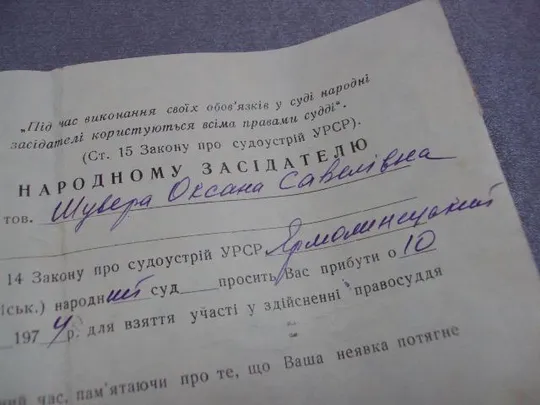 „Під час виконання своїх обов'язків у суді народні
засідателі користуються всіма правами судді“.
(Ст. 15 Закону про судоустрій УРСР).
НАРОДНОМУ ЗАСІДАТЕЛЮ
тов. Шувера Оксана Савелівна
14 Закону про судоустрій УРСР Ярмолинецький
іськ.) народний суд просить Вас прибути о 10
1974 р. для взяття участі у здійсненні правосуддя
ний час, пам'ятаючи про те, що Ваша неявка потягне